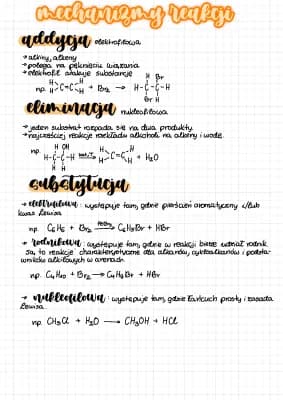 mechanizmy reakcji
addycja elektrofilowa
→ alkiny, alkeny
→ polega na pęknięciu wiązania
→ elektrofil atakuje substancje
H Br
np. H H C=C H H + Br₂ → H-C-C-H
Br H
eliminacja nukleofilowa
→ jeden substrat rozpada się na dwa produkty.
→ najczęściej reakcje rozkładu alkoholi na alkeny i wodę.
H OH
np. H-C-C-H → H H C=C H H + H₂O
H H
substytucja
→ elektrofilowa: występuje tam, gdzie pierścień aromatyczny i/lub
kwas Lewisa
np. C₆H₆ + Br₂ FeBr₃→ C₆H₅Br + HBr
→ rodnikowa: występuje tam, gdzie w reakcji bierze udział rodnik.
są to reakcje charakterystyczne dla alkanów, cykloalkanów i podsta-
wników alkilowych w arenach
np. C₄H₁₀ + Br₂ → C₄H₉Br + HBr
→ nukleofilowa: występuje tam, gdzie łańcuch prosty i zasada
Lewisa.
np. CH₃Cl + H₂O → CH₃OH + HCl